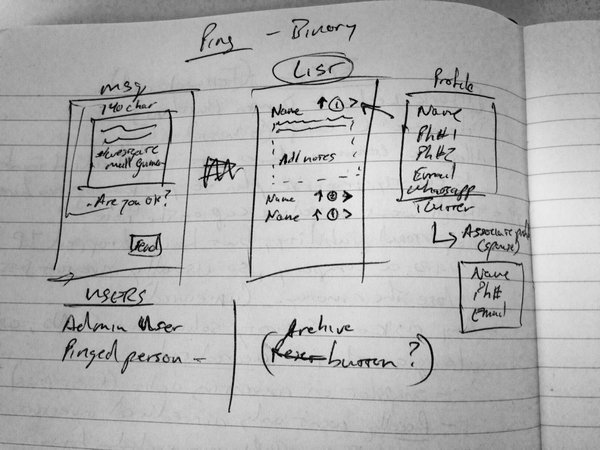 Ping - Binary
msg
140 char
Are you ok?
Send
List
Name ↑ 1 >
Add notes
Name ↑ >
Name ↑ 1 >
Profile
Name
Ph#1
Ph#2
Email
Whatsapp
Twitter
↳ Associate
(spouse)
Name
Ph#
Email
USERS
Admin User
Pinged person -
Archive
(Reset button ?)